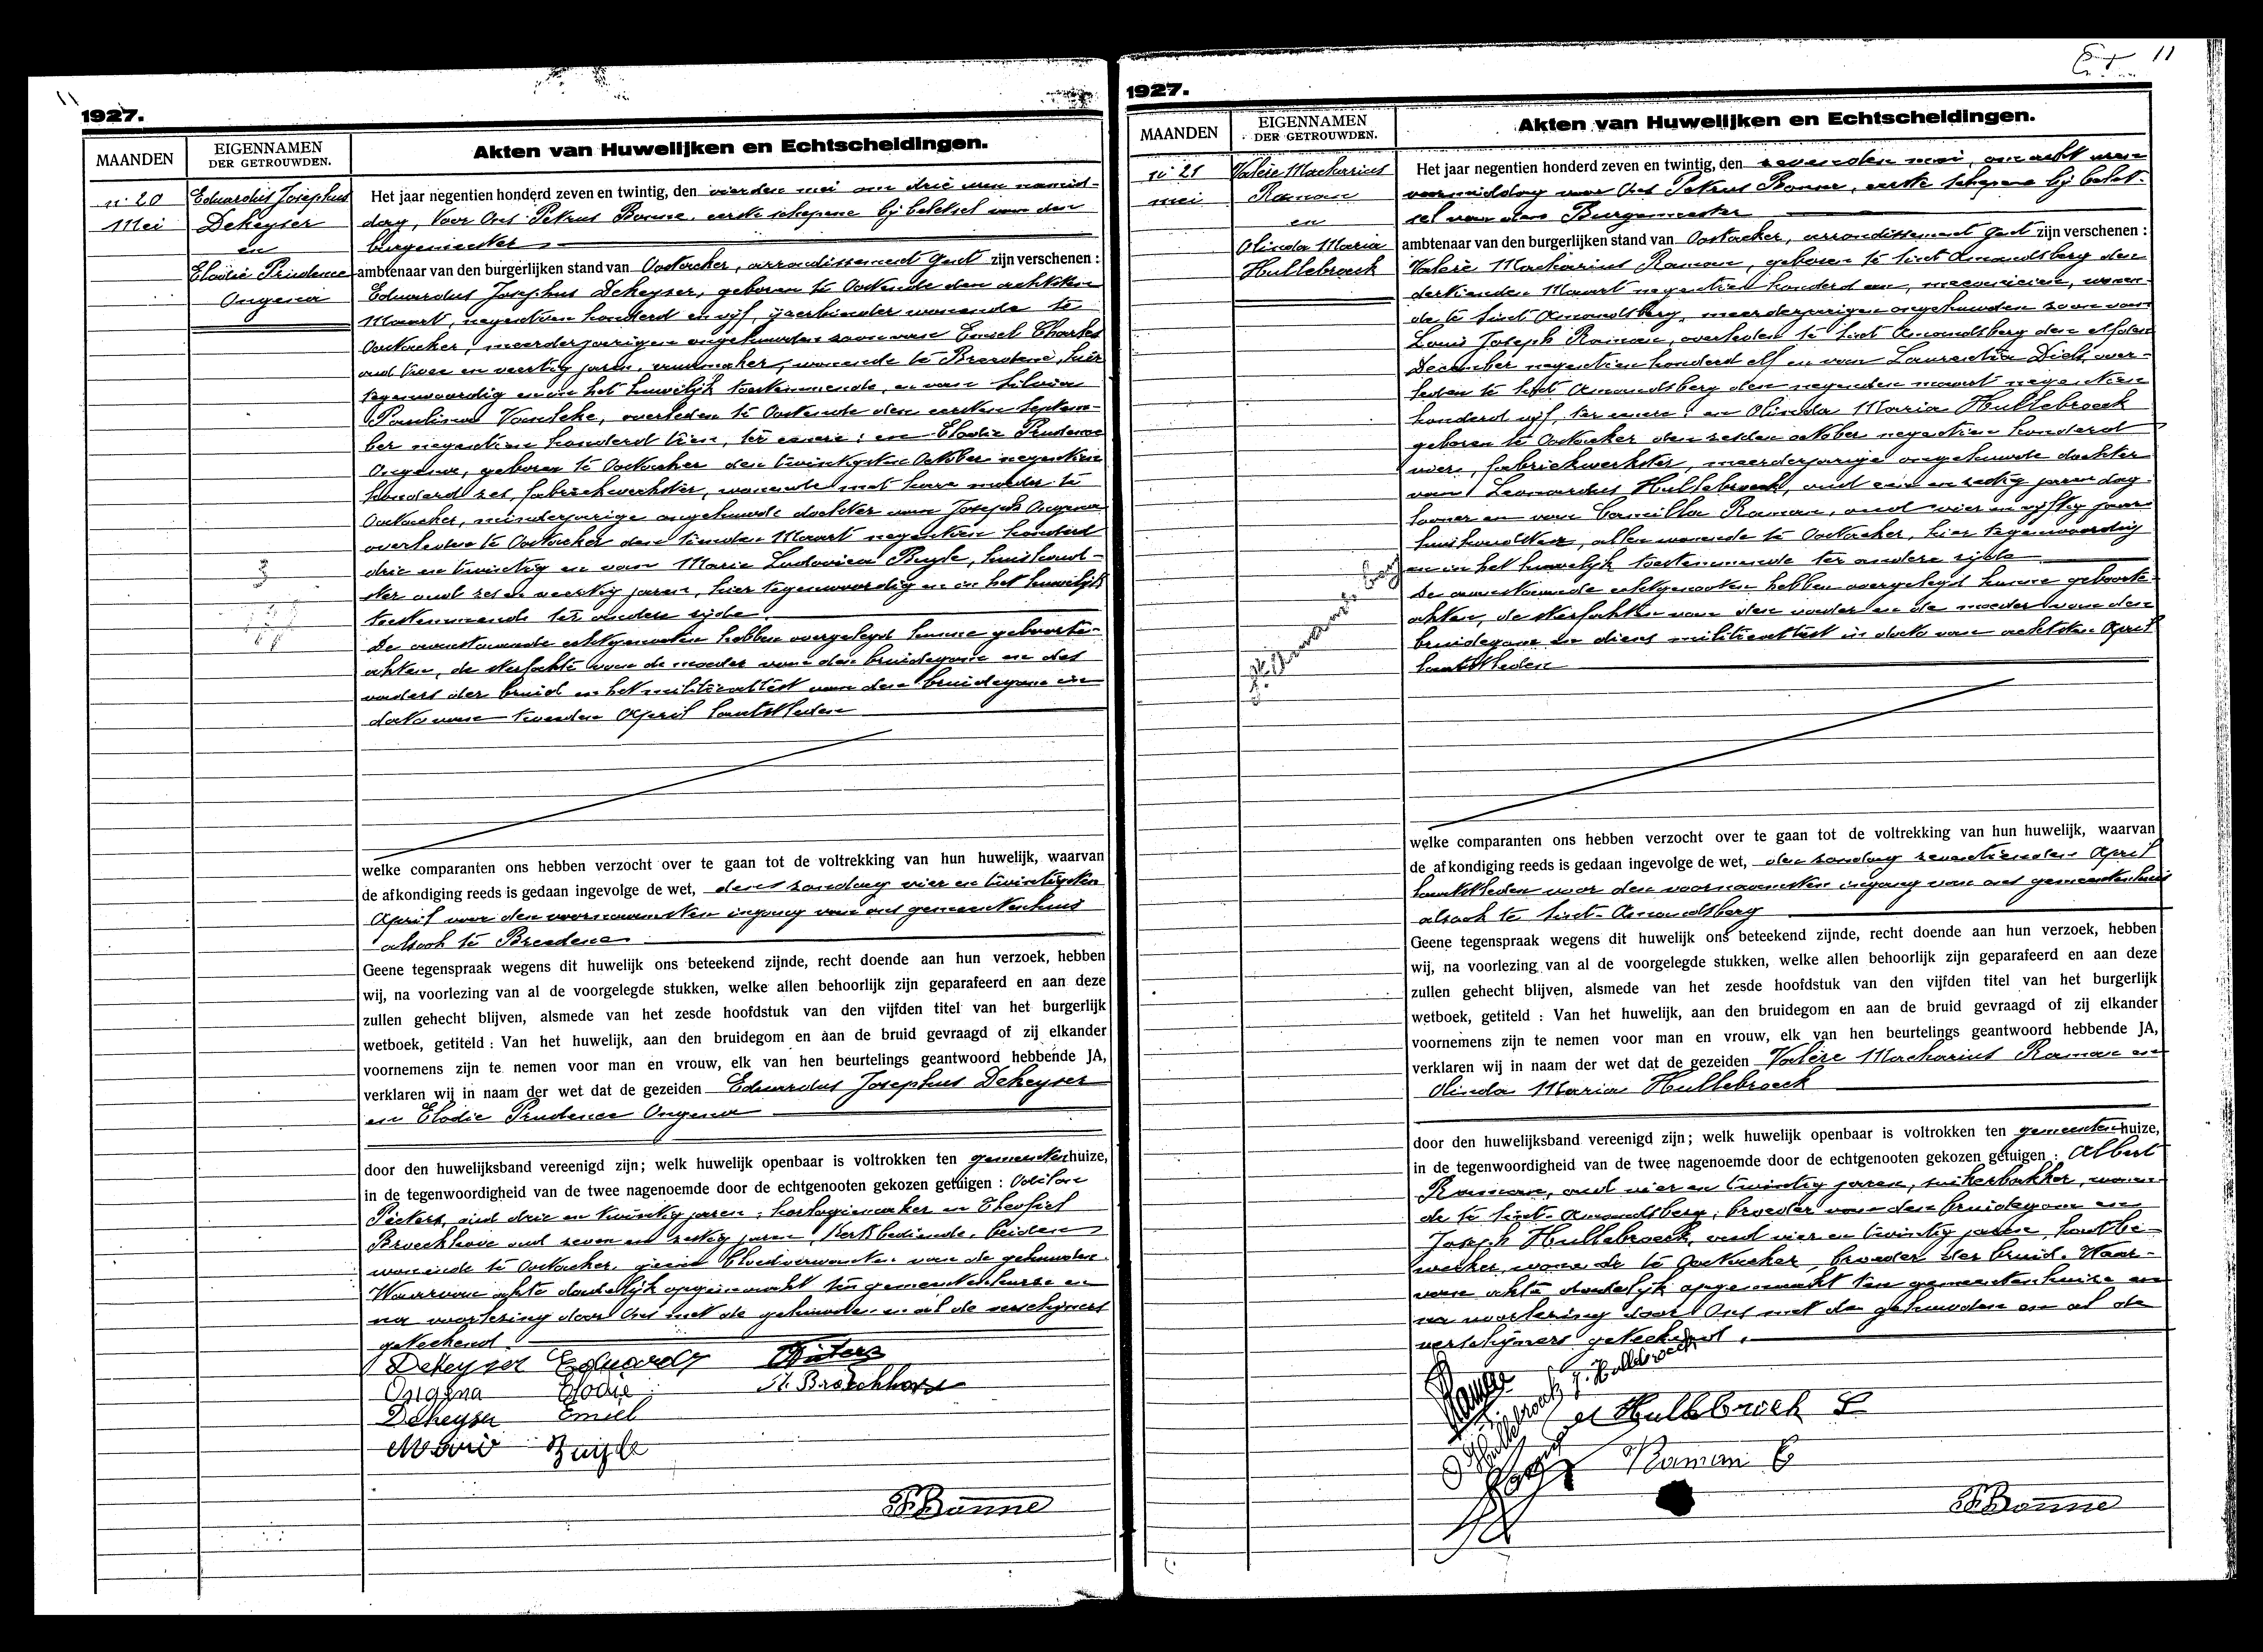 1927.
MAANDEN
EIGENNAMEN
DER GETROUWDEN.
Akten van Huwelijken en Echtscheidingen.
n: 20
Mei
Eduardus Josephus
Dekeyser
en
Elodie Prudence
Ongena
Het jaar negentien honderd zeven en twintig, den vierden mei om drie uren namid-
dag, Voor Ons Petrus Bonne, eerste schepene bij beletsel van den
burgemeester
ambtenaar van den burgerlijken stand van Oostacker, arrondissement Gent zijn verschenen :
Eduardus Josephus Dekeyser, geboren te Oostende den achtsten
Maart, negentien honderd en vijf, ijzerbinder wonende te
Oostacker, meerderjarigen ongehuwden zoon van Emiel Charles
oud twee en veertig jaren, wonende te Breedene, hier
tegenwoordig en in het huwelijk toestemmende, en van Silvia
Paulina overleden te Oostende den eersten Septem-
ber negentien honderd tien, ter eenere; en Elodie Prudence
Ongena, geboren te Oostacker den twintigsten October negentien
honderd zes, fabriekwerkster, wonende met hare moeder te
Oostacker, minderjarige ongehuwde dochter van Joseph Ongena
overleden te Oostacker den tienden Maart negentien honderd
drie en twintig en van Marie Ludovica Buyle, huishoud-
ster oud zes en veertig jaren, hier tegenwoordig en in het huwelijk
toestemmende ter andere zijde
De aanstaande echtgenooten hebben overgelegd hunne geboorte-
akten, de sterfakte van de moeder van den bruidegom en des
vaders der bruid en het militieattest van den bruidegom in
dato van tweeden April laatstleden
welke comparanten ons hebben verzocht over te gaan tot de voltrekking van hun huwelijk, waarvan
de afkondiging reeds is gedaan ingevolge de wet, den zondag vier en twintigsten
April voor den voornaamsten ingang van ons gemeentenhuis
alsook te Breedene
Geene tegenspraak wegens dit huwelijk ons beteekend zijnde, recht doende aan hun verzoek, hebben
wij, na voorlezing van al de voorgelegde stukken, welke allen behoorlijk zijn geparafeerd en aan deze
zullen gehecht blijven, alsmede van het zesde hoofdstuk van den vijfden titel van het burgerlijk
wetboek, getiteld : Van het huwelijk, aan den bruidegom en aan de bruid gevraagd of zij elkander
voornemens zijn te nemen voor man en vrouw, elk van hen beurtelings geantwoord hebbende JA,
verklaren wij in naam der wet dat de gezeiden Eduardus Josephus Dekeyser
en Elodie Prudence Ongena
door den huwelijksband vereenigd zijn; welk huwelijk openbaar is voltrokken ten gemeentenhuize,
in de tegenwoordigheid van de twee nagenoemde door de echtgenooten gekozen getuigen : Odilon
oud drie en twintig jaren, horlogiemaker en Theofiel
Broeckhove oud zeven en zestig jaren, kerkbediende, beiden
wonende te Oostacker, geene bloedverwanten van de gehuwden.
Waarvan akte dadelijk opgemaakt ten gemeentenhuize en
na voorlezing door Ons met de gehuwden en al de verschijners
geteekend.
Dekeyser Eduard
Ongena Elodie
Dekeyser Emiel
Marie Buyle
PBonne
11
1927.
MAANDEN
EIGENNAMEN
DER GETROUWDEN.
Akten van Huwelijken en Echtscheidingen.
n: 21
mei
Valère Macharius
Raman
en
Olinda Maria
Hullebroeck
Het jaar negentien honderd zeven en twintig, den zevenden mei, om acht uren
voormiddag voor Ons Petrus Bonne, eerste schepene bij belet-
sel van den Burgemeester
ambtenaar van den burgerlijken stand van Oostacker, arrondissement Gent zijn verschenen :
Valère Macharius Raman, geboren te Sint Amandsberg den
dertienden Maart negentien honderd een, mecanicien, wonen-
de te Sint Amandsberg, meerderjarigen ongehuwden zoon van
Louis Joseph Raman, overleden te Sint Amandsberg den elfden
December negentien honderd elf en van Laurentia over-
leden te Sint Amandsberg den negenden maart negentien
honderd vijf, ter eenere; en Olinda Maria Hullebroeck
geboren te Oostacker den zesden october negentien honderd
vier, fabriekwerkster, meerderjarige ongehuwde dochter
van Leonardus Hullebroeck, oud een en zestig jaren dag-
looner en van Camilla Raman, oud vier en vijftig jaar
huishoudster, allen wonende te Oostacker, hier tegenwoordig
en in het huwelijk toestemmende ter andere zijde
De aanstaande echtgenooten hebben overgelegd hunne geboorte-
akten, de sterfakten van den vader en de moeder van den
bruidegom en diens militieattest in dato van achtsten April
laatstleden
St Amandsberg
welke comparanten ons hebben verzocht over te gaan tot de voltrekking van hun huwelijk, waarvan
de afkondiging reeds is gedaan ingevolge de wet, den zondag zeventienden April
laatstleden voor den voornaamsten ingang van ons gemeentenhuis
alsook te Sint-Amandsberg
Geene tegenspraak wegens dit huwelijk ons beteekend zijnde, recht doende aan hun verzoek, hebben
wij, na voorlezing van al de voorgelegde stukken, welke allen behoorlijk zijn geparafeerd en aan deze
zullen gehecht blijven, alsmede van het zesde hoofdstuk van den vijfden titel van het burgerlijk
wetboek, getiteld : Van het huwelijk, aan den bruidegom en aan de bruid gevraagd of zij elkander
voornemens zijn te nemen voor man en vrouw, elk van hen beurtelings geantwoord hebbende JA,
verklaren wij in naam der wet dat de gezeiden Valère Macharius Raman en
Olinda Maria Hullebroeck
door den huwelijksband vereenigd zijn; welk huwelijk openbaar is voltrokken ten gemeentenhuize,
in de tegenwoordigheid van de twee nagenoemde door de echtgenooten gekozen getuigen : Albert
Raman, oud vier en twintig jaren, suikerbakker, wonen-
de te Sint-Amandsberg, broeder van den bruidegom en
Joseph Hullebroeck, oud vier en twintig jaren houtbe-
werker, wonende te Oostacker, broeder der bruid. Waar-
van akte dadelijk opgemaakt ten gemeentenhuize en
na voorlezing door Ons met de gehuwden en al de
verschijners geteekend.
J. Hullebroeck
O Hullebroeck
Hullebroeck L
Raman C
PBonne